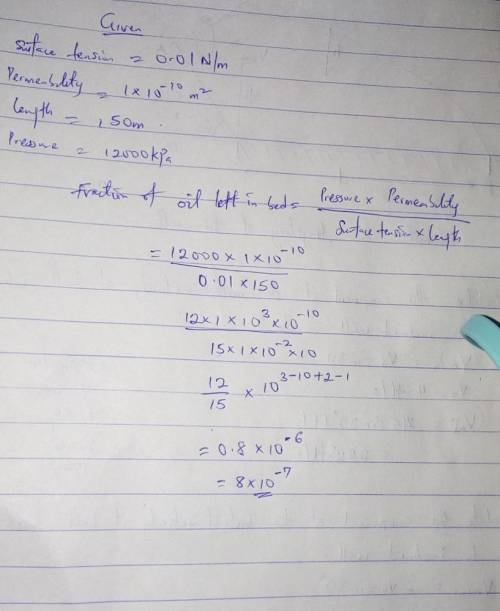 Given
Surface tension = 0.01 N/m
Permeability = 1 x 10⁻¹⁰ m²
length = 150m.
Pressure = 12000kPa
Fraction of oil left in bed = Pressure x Permeability / Surface tension x length
= 12000 x 1 x 10⁻¹⁰ / 0.01 x 150
12 x 1 x 10³ x 10⁻¹⁰ / 15 x 1 x 10⁻² x 10
12/15 x 10³⁻¹⁰⁺²⁻¹
= 0.8 x 10⁻⁶
= 8 x 10⁻⁷